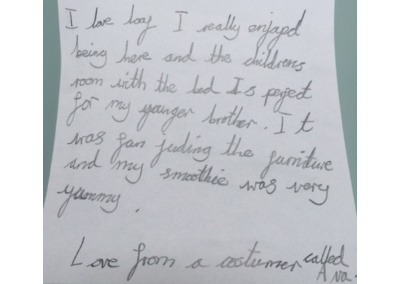 I love loaf I really enjoyed
being here and the childrens
room with the bed Is perfect
for my younger brother. It
was fun juding the furniture
and my smoothie was very
yummy.
Love from a costumer called
Ava.